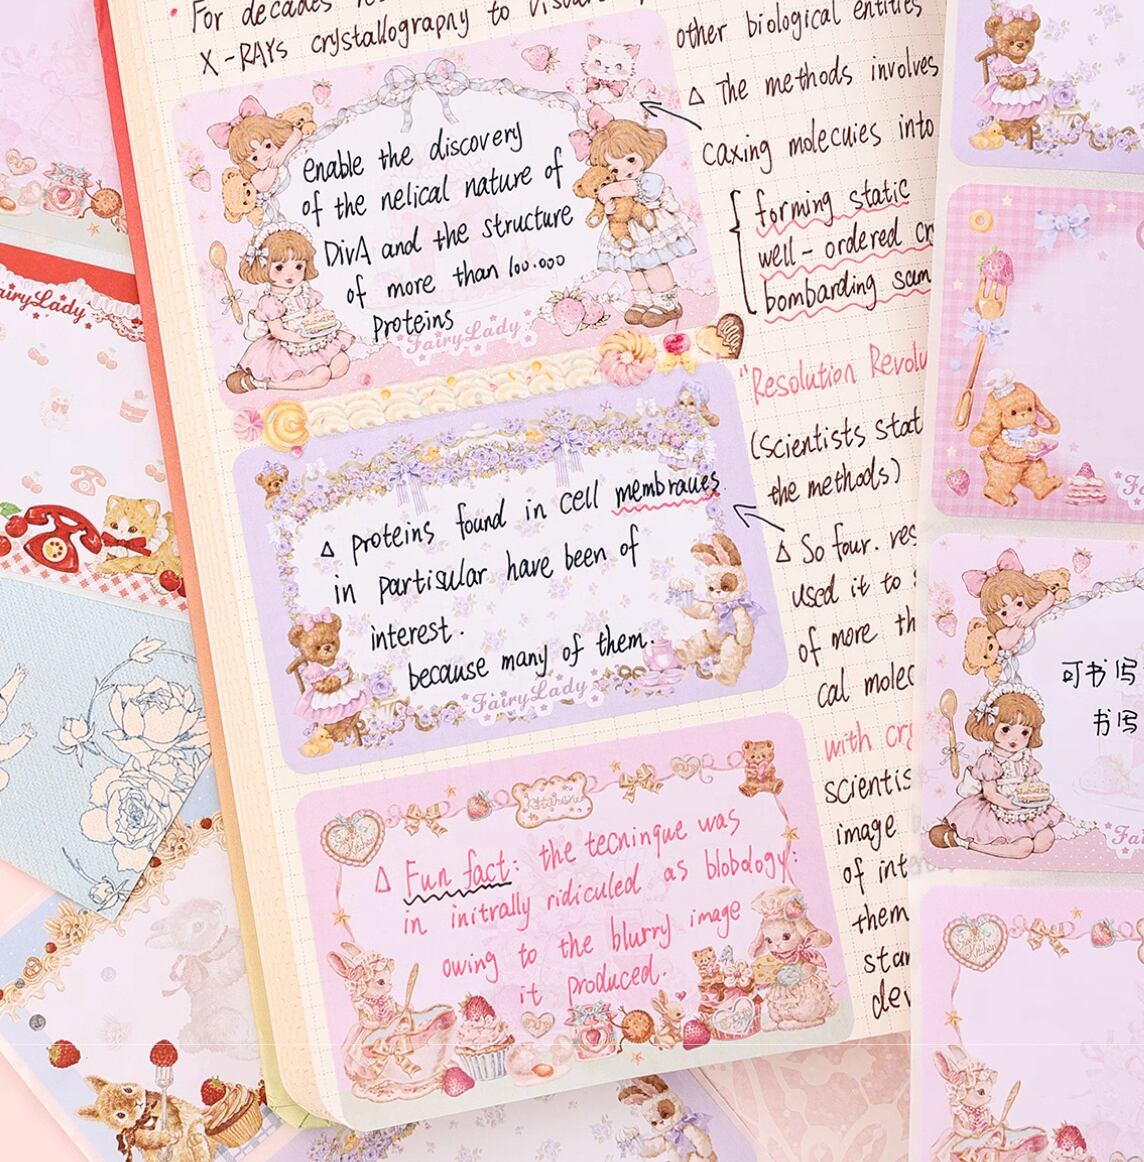 For decades
X-RAYs crystallography to
enable the discovery
of the nelical nature of
DivA and the structure
of more than 100.000
proteins
FairyLady
△ proteins found in cell membraues
in partisular have been of
interest.
because many of them.
FairyLady
△ Fun fact: the tecninque was
in initrally ridiculed as blobology:
owing to the blurry image
it produced.
other biological entities
△ The methods involves
caxing molecuies into
forming static
well-ordered cr
bombarding sam
"Resolution Revolu
(scientists stat
the methods)
△ So four. res
used it to
of more th
cal molec
with cry
scientis
image
of int
them
star
dev
FairyLady
可书写
书写